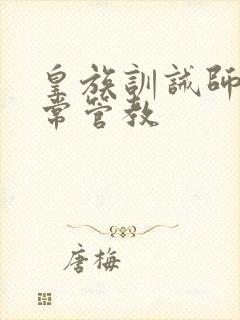 皇族訓誡師
常管教
唐梅